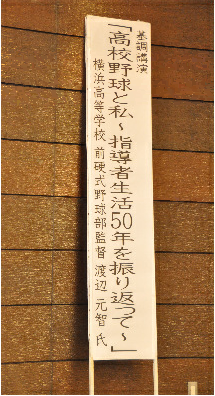 基調講演
「高校野球と私～指導者生活50年を振り返って～」
横浜高等学校 前硬式野球部監督 渡辺 元智 氏